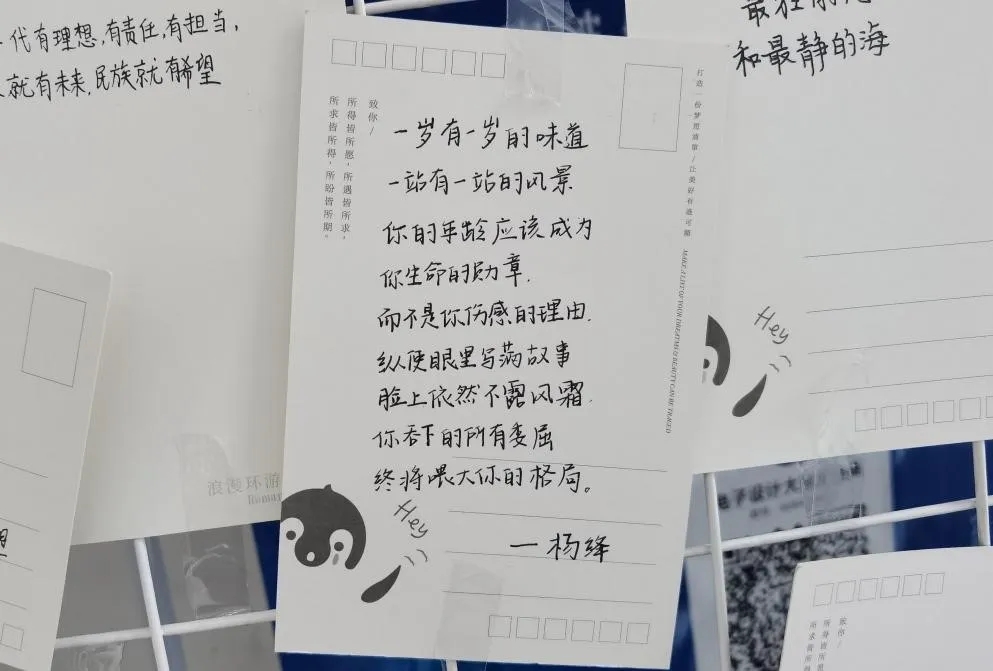 代有理想,有责任,有担当,
就有未来,民族就有希望
最狂
和最静的海
致你/
所得皆所愿,所遇皆所求,
所求皆所得,所盼皆所期。
一岁有一岁的味道
一站有一站的风景
你的年龄应该成为
你生命的勋章.
而不是你伤感的理由.
纵使眼里写满故事
脸上依然不露风霜.
你吞下的所有委屈
终将喂大你的格局。
—杨绛
打造一份梦想清单/让美好有迹可循
MAKE A LIST OF YOUR DREAMS & BEAUTY CAN BE TRACED
Hey
浪漫环游
Roma
Hey
电子设计大
致你/